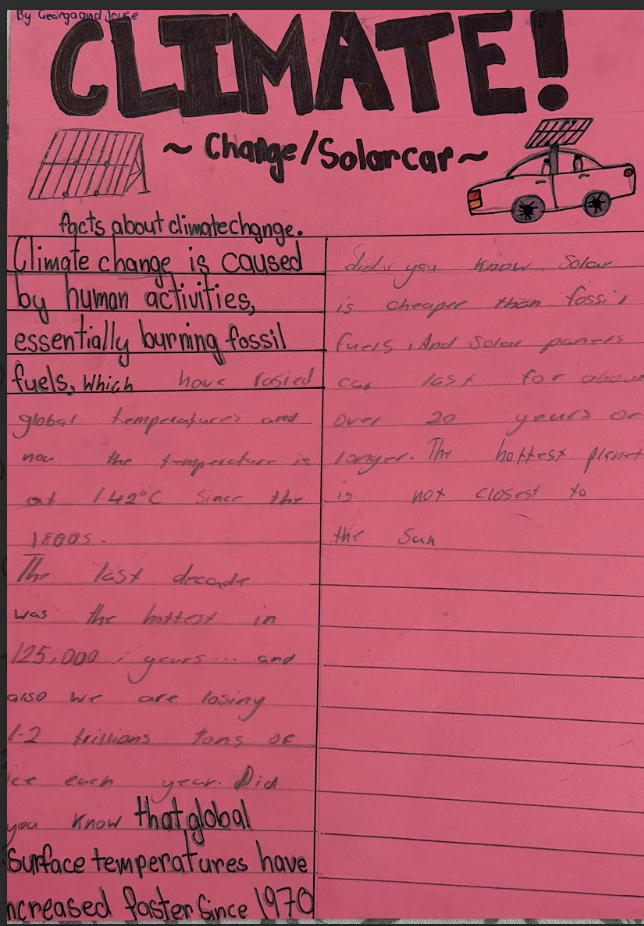 By Georga and Joyse
CLIMATE!
~ Change/Solar car ~
facts about climate change.
Climate change is caused
by human activities,
essentially burning fossil
fuels, which have rasied
global temperatures and
now the temperature is
at 1.42°C since the
1800s.
The last decade
was the hottest in
125,000 years... and
also we are losing
1.2 trillions tons of
ice each year. Did
you know that global
surface temperatures have
ncreased faster since 1970
did you know Solar
is cheaper than fossil
fuels, And Solar panels
can last for about
over 20 years or
longer. The hottest planet
is not closest to
the Sun